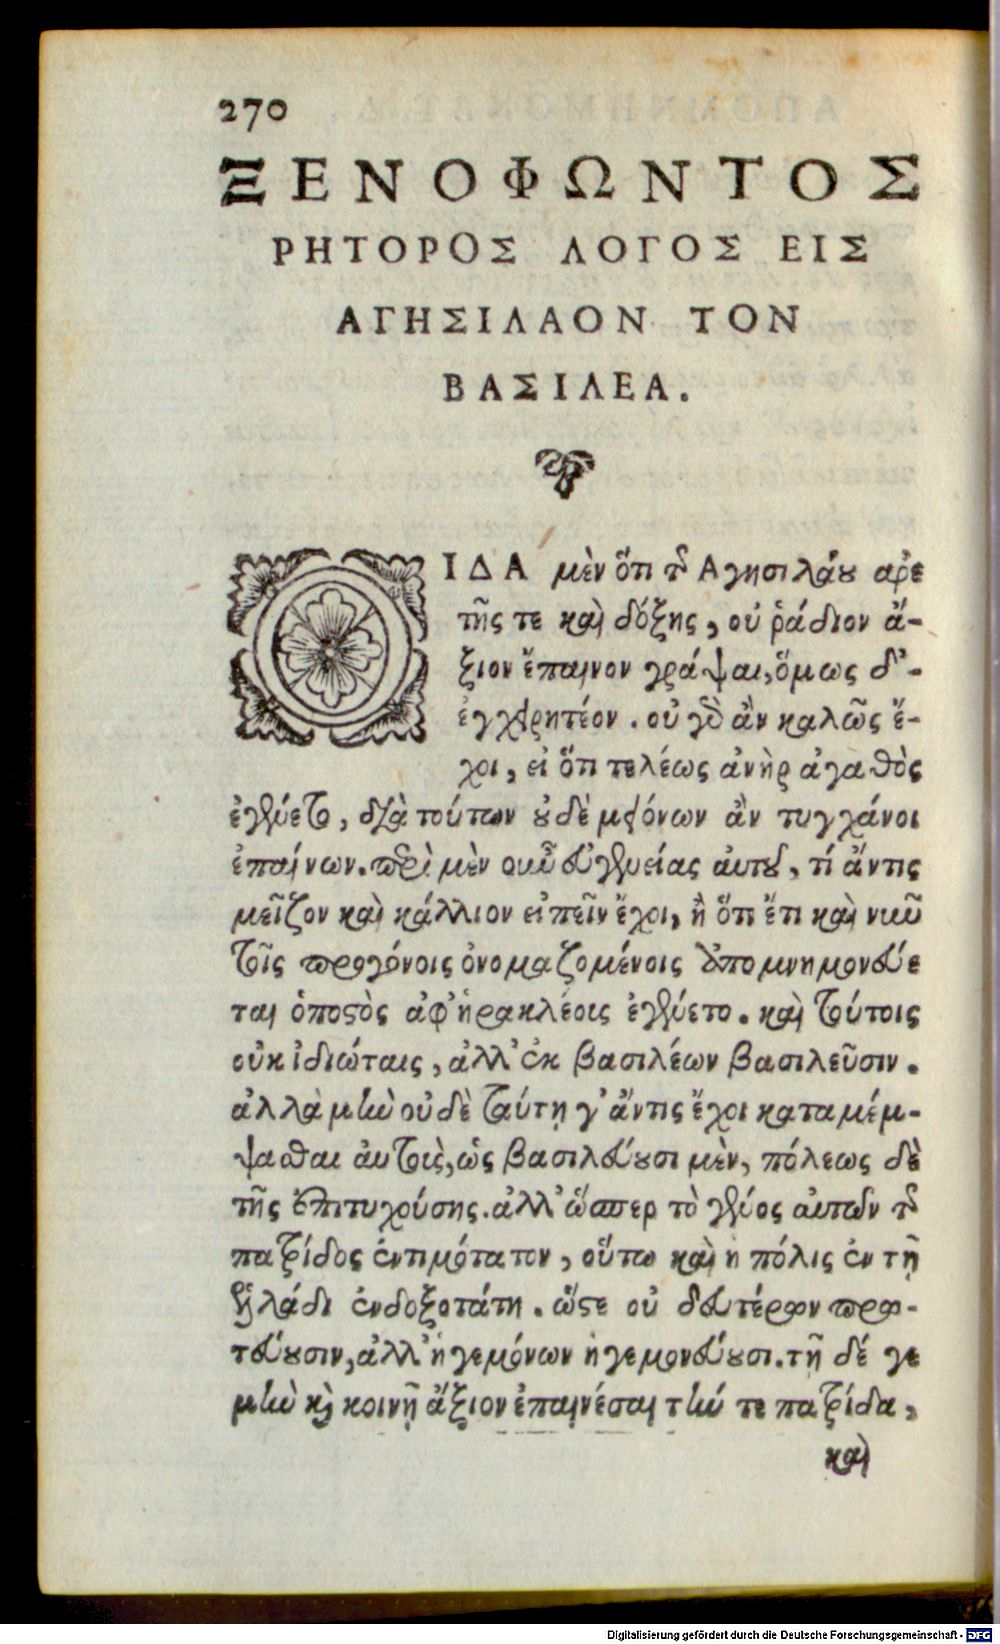 270
ΞΕΝΟΦΩΝΤΟΣ
ΡΗΤΟΡΟΣ ΛΟΓΟΣ ΕΙΣ
ΑΓΗΣΙΛΑΟΝ ΤΟΝ
ΒΑΣΙΛΕΑ.
ΟΙΔΑ μὲν ὅτι τῆς Ἀγησιλάου ἀρε
τῆς τε καὶ δόξης, οὐ ῥᾴδιον ἄ-
ξιον ἔπαινον γράψαι, ὅμως δ'-
ἐγχειρητέον. οὐ γὰρ ἂν καλῶς ἔ-
χοι, εἰ ὅτι τελέως ἀνὴρ ἀγαθὸς
ἐγένετο, διὰ τούτων οὐδὲ μειόνων ἂν τυγχάνοι
ἐπαίνων. περὶ μὲν οὖν εὐγενείας αὐτοῦ, τί ἄντις
μεῖζον καὶ κάλλιον εἰπεῖν ἔχοι, ἢ ὅτι ἔτι καὶ νῦν
τοῖς προγόνοις ὀνομαζομένοις ὑπομνημονεύε
ται ὁποστὸς ἀφ' ἡρακλέοις ἐγένετο. καὶ τούτοις
οὐκ ἰδιώταις, ἀλλ' ἐκ βασιλέων βασιλεῦσιν.
ἀλλὰ μὴν οὐδὲ ταύτῃ γ' ἄντις ἔχοι καταμέμ-
ψασθαι αὐτοὺς, ὡς βασιλεύουσι μὲν, πόλεως δὲ
τῆς ἐπιτυχούσης. ἀλλ' ὥσπερ τὸ γένος αὐτῶν τῆς
πατρίδος ἐντιμότατον, οὕτω καὶ ἡ πόλις ἐν τῇ
ἑλλάδι ἐνδοξοτάτη. ὥστε οὐ δευτέρων πρω-
τεύουσιν, ἀλλ' ἡγεμόνων ἡγεμονεύουσι. τῇ δέ γε
μὴν καὶ κοινῇ ἄξιον ἐπαινέσαι τήν τε πατρίδα,
καὶ
Digitalisierung gefördert durch die Deutsche Forschungsgemeinschaft - DFG